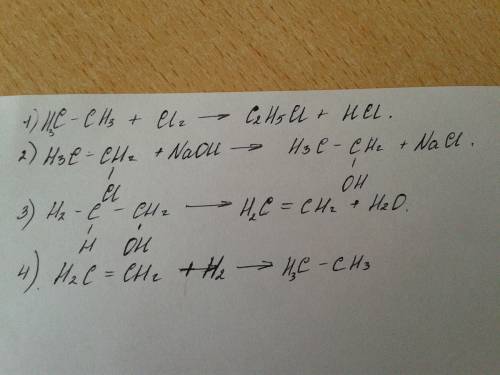 1) H3C - CH3 + Cl2 → C2H5Cl + HCl.
2) H3C - CH2 + NaOH → H3C - CH2 + NaCl.
Cl OH
3) H2 - C - CH2 → H2C = CH2 + H2O.
H OH
4). H2C = CH2 + H2 → H3C - CH3